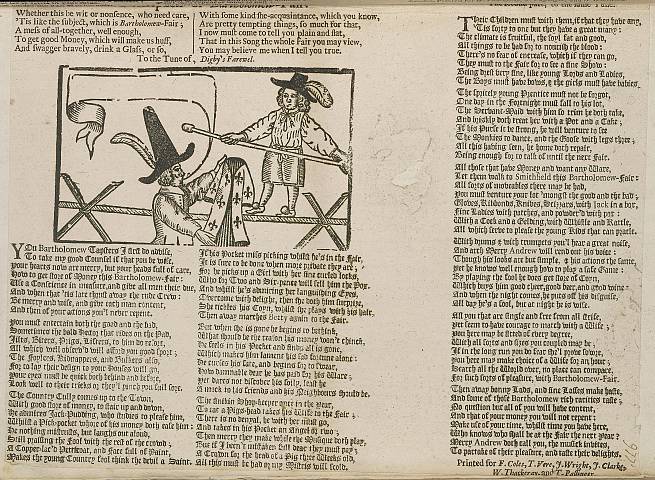 Whether this be wit or nonsence, who need care,
'Tis like the subject, which is Bartholomew-Fair;
A mess of all-together, well enough,
To get good Money, which will make us huff,
And swagger bravely, drink a Glass, or so,
With some kind she-acquaintance, which you know,
Are pretty tempting things, so much for that,
I now must come to tell you plain and flat,
That in this Song the whole Fair you may view,
You may believe me when I tell you true.
To the Tune of, Digby's Farewel.
YOu Bartholomew Tapsters I first do advise,
To take my good Counsel if that you be wise,
Your hearts now are merry, but your heads full of care,
How to get store of Money this Bartholomew-Fair:
Use a Conscience in measure, and give all men their due,
And when that 'tis late thrust away the rude Crew:
Be merry and wise, and give each man content,
And then of your actions you'l never repent.
You must entertain both the good and the bad,
Sometimes the bold Hector that rides on the Pad,
All which well observ'd will afford you good sport;
For to lay their designs to your Houses will go,
Your eyes must be quick both behind and before,
Look well to their tricks or they'l put you full sore.
The Country Cully comes up to the Town,
With good store of money, to stair up and down,
He admires Jack-Pudding, who strives to please him,
Whilst a Pick-pocket whore of his money doth ease him:
he nothing mistrusting, but laughs out aloud,
Still praising the Fool with the rest of the crowd;
A Copper-lac'd Petticoat, and Face full of Paint,
Makes the young Country fool think the devil a Saint.
If his Pocket miss picking whilst he's in the Fair,
It is sure to be done when more private they are;
For he picks up a Girl with her fine curled locks,
Who for Two and Six-pence will sell him the Pox.
And whilst he's admiring her languishing Eyes,
Overcome with delight, then she doth him surprize,
She tickles his Coyn, whilst she plays with his hair,
Then away marches Betty again to the Fair.
But when she is gone he begins to bethink,
What should be the reason his money won't chinck,
he feels in his Pocket and finds all is gone,
Which makes him lament his sad fortune alone:
he curses his fate, and begins for to swear,
how damnable dear he has paid for his Ware;
yet dares not discover his folly, least he
A mock to his friends and his Neighbours should be.
To eat a Pigs-head takes his Wife to the Fair;
There is no denyal, he with her must go,
And takes in his Pocket an Angel or two;
Then merry they make while the Musique doth play,
But if I been't mistaken full dear they must pay;
A Crown for the head of a Pig three Weeks old,
All this must be had or my Mistris will scold.
Their Children must with them, if that they have any,
'Tis forty to one but they have a great many:
The climate is fruitful, the soyl fat and good,
All things to be had for to nourish the blood:
There's no fear of encrease, which if they can go,
They must to the Fair for to see a fine Show:
Being drest very fine, like young Lords and Ladies,
The Boys must have bows, & the girls must have babies.
The spricely young Prentice must not be forgot,
One day in the Fortnight must fall to his lot,
The Servant-Maid with him to trim he doth take,
And briskly doth treat her with a Pot and a Cake;
If his Purse it be strong, he will venture to see
The Monkies to dance, and the Goose with legs three;
All this having seen, he home doth repair,
Being enough for to talk of until the next Fair.
All those that have Money and want any Ware,
Let them walk to Smithfield this Bartholomew-Fair:
All sorts of moveables there may be had,
You must venture your lot 'mongst the good and the bad;
Gloves, Ribbonds, Knives, Scizars, with Jack in a box,
Fine Ladies with patches, and powder'd with pox:
With a Cock and a Gelding, with Whistle and Rattle,
All which serve to please the young Kids that can prattle.
With drums & with trumpets you'l hear a great noise,
And arch Merry Andrew will rend out his voice:
Though his looks are but simple, & his actions the same,
yet he knows well enough how to play a sure Game:
By playing the fool he does get store of Coyn,
Which buys him good cheer, good beer, and good wine:
And when the night comes, he puts off his disguise,
All day he's a fool, but at night he is wise.
All you that are single and free from all strife,
yet seem to have courage to match with a Wife;
you here may be fitted of every degree,
With all sorts and sizes you coupled may be;
If in the long run you do find she'l prove sowre,
you here may make choice of a Wife for an hour;
Search all the World over, no place can compare,
For such sorts of pleasure, with Bartholomew-Fair.
Then away bonny Lads, and fine Lasses make haste,
And some of those Bartholomew rich rarities taste;
No question but all of you will have content,
And that of your money you will not repent:
Make use of your time, whilst time you have here,
Who knows who shall be at the Fair the next year?
Merry Andrew doth call you, the musick invites,
To partake of their pleasure, and taste their delights.
Printed for F. Coles, T. Vere, J. Wright, J. Clarke,
W. Thackeray, and T. Passinger.